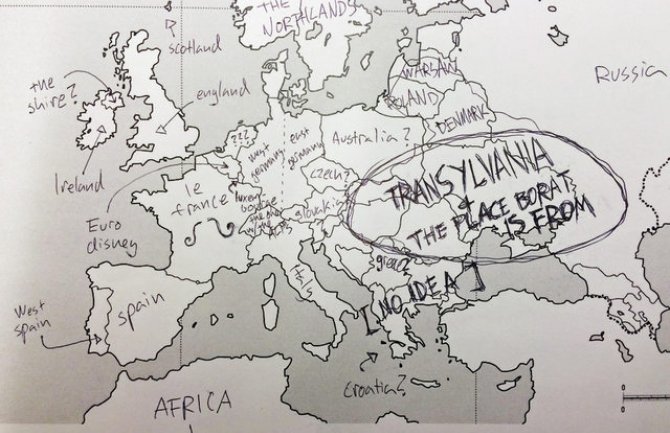 THE
NORTHLANDS
scotland
the
shire?
england
Ireland
Euro
disney
le
france
???
west
germany
east
germany
Australia?
czech?
slovakia
ALPS
WARSAW
POLAND
DENMARK
Russia
TRANSYLVANIA
&
THE PLACE BORAT
IS FROM
West
spain
spain
greece
[NO IDEA]
Croatia?
AFRICA